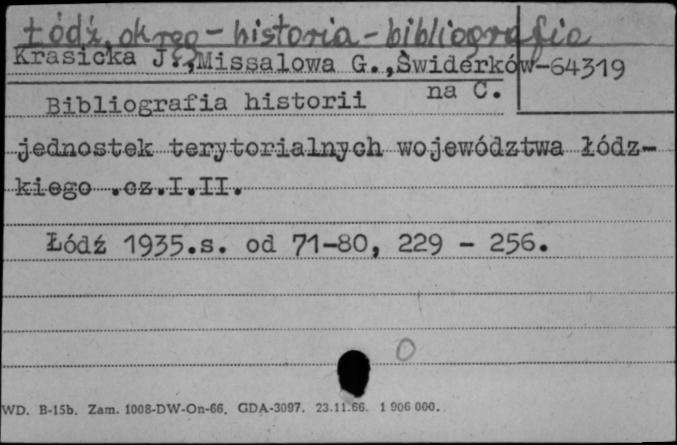 Łódź, okręg - historia - bibliografia
Krasicka J., Missalowa G., Świderków-64319
na C.
Bibliografia historii
jednostek terytorialnych województwa łódz-
kiego .cz.I.II.
Łódź 1935.s. od 71-80, 229 - 256.
0
WD. B-15b. Zam. 1008-DW-On-66. GDA-3097. 23.11.66. 1 906 000.